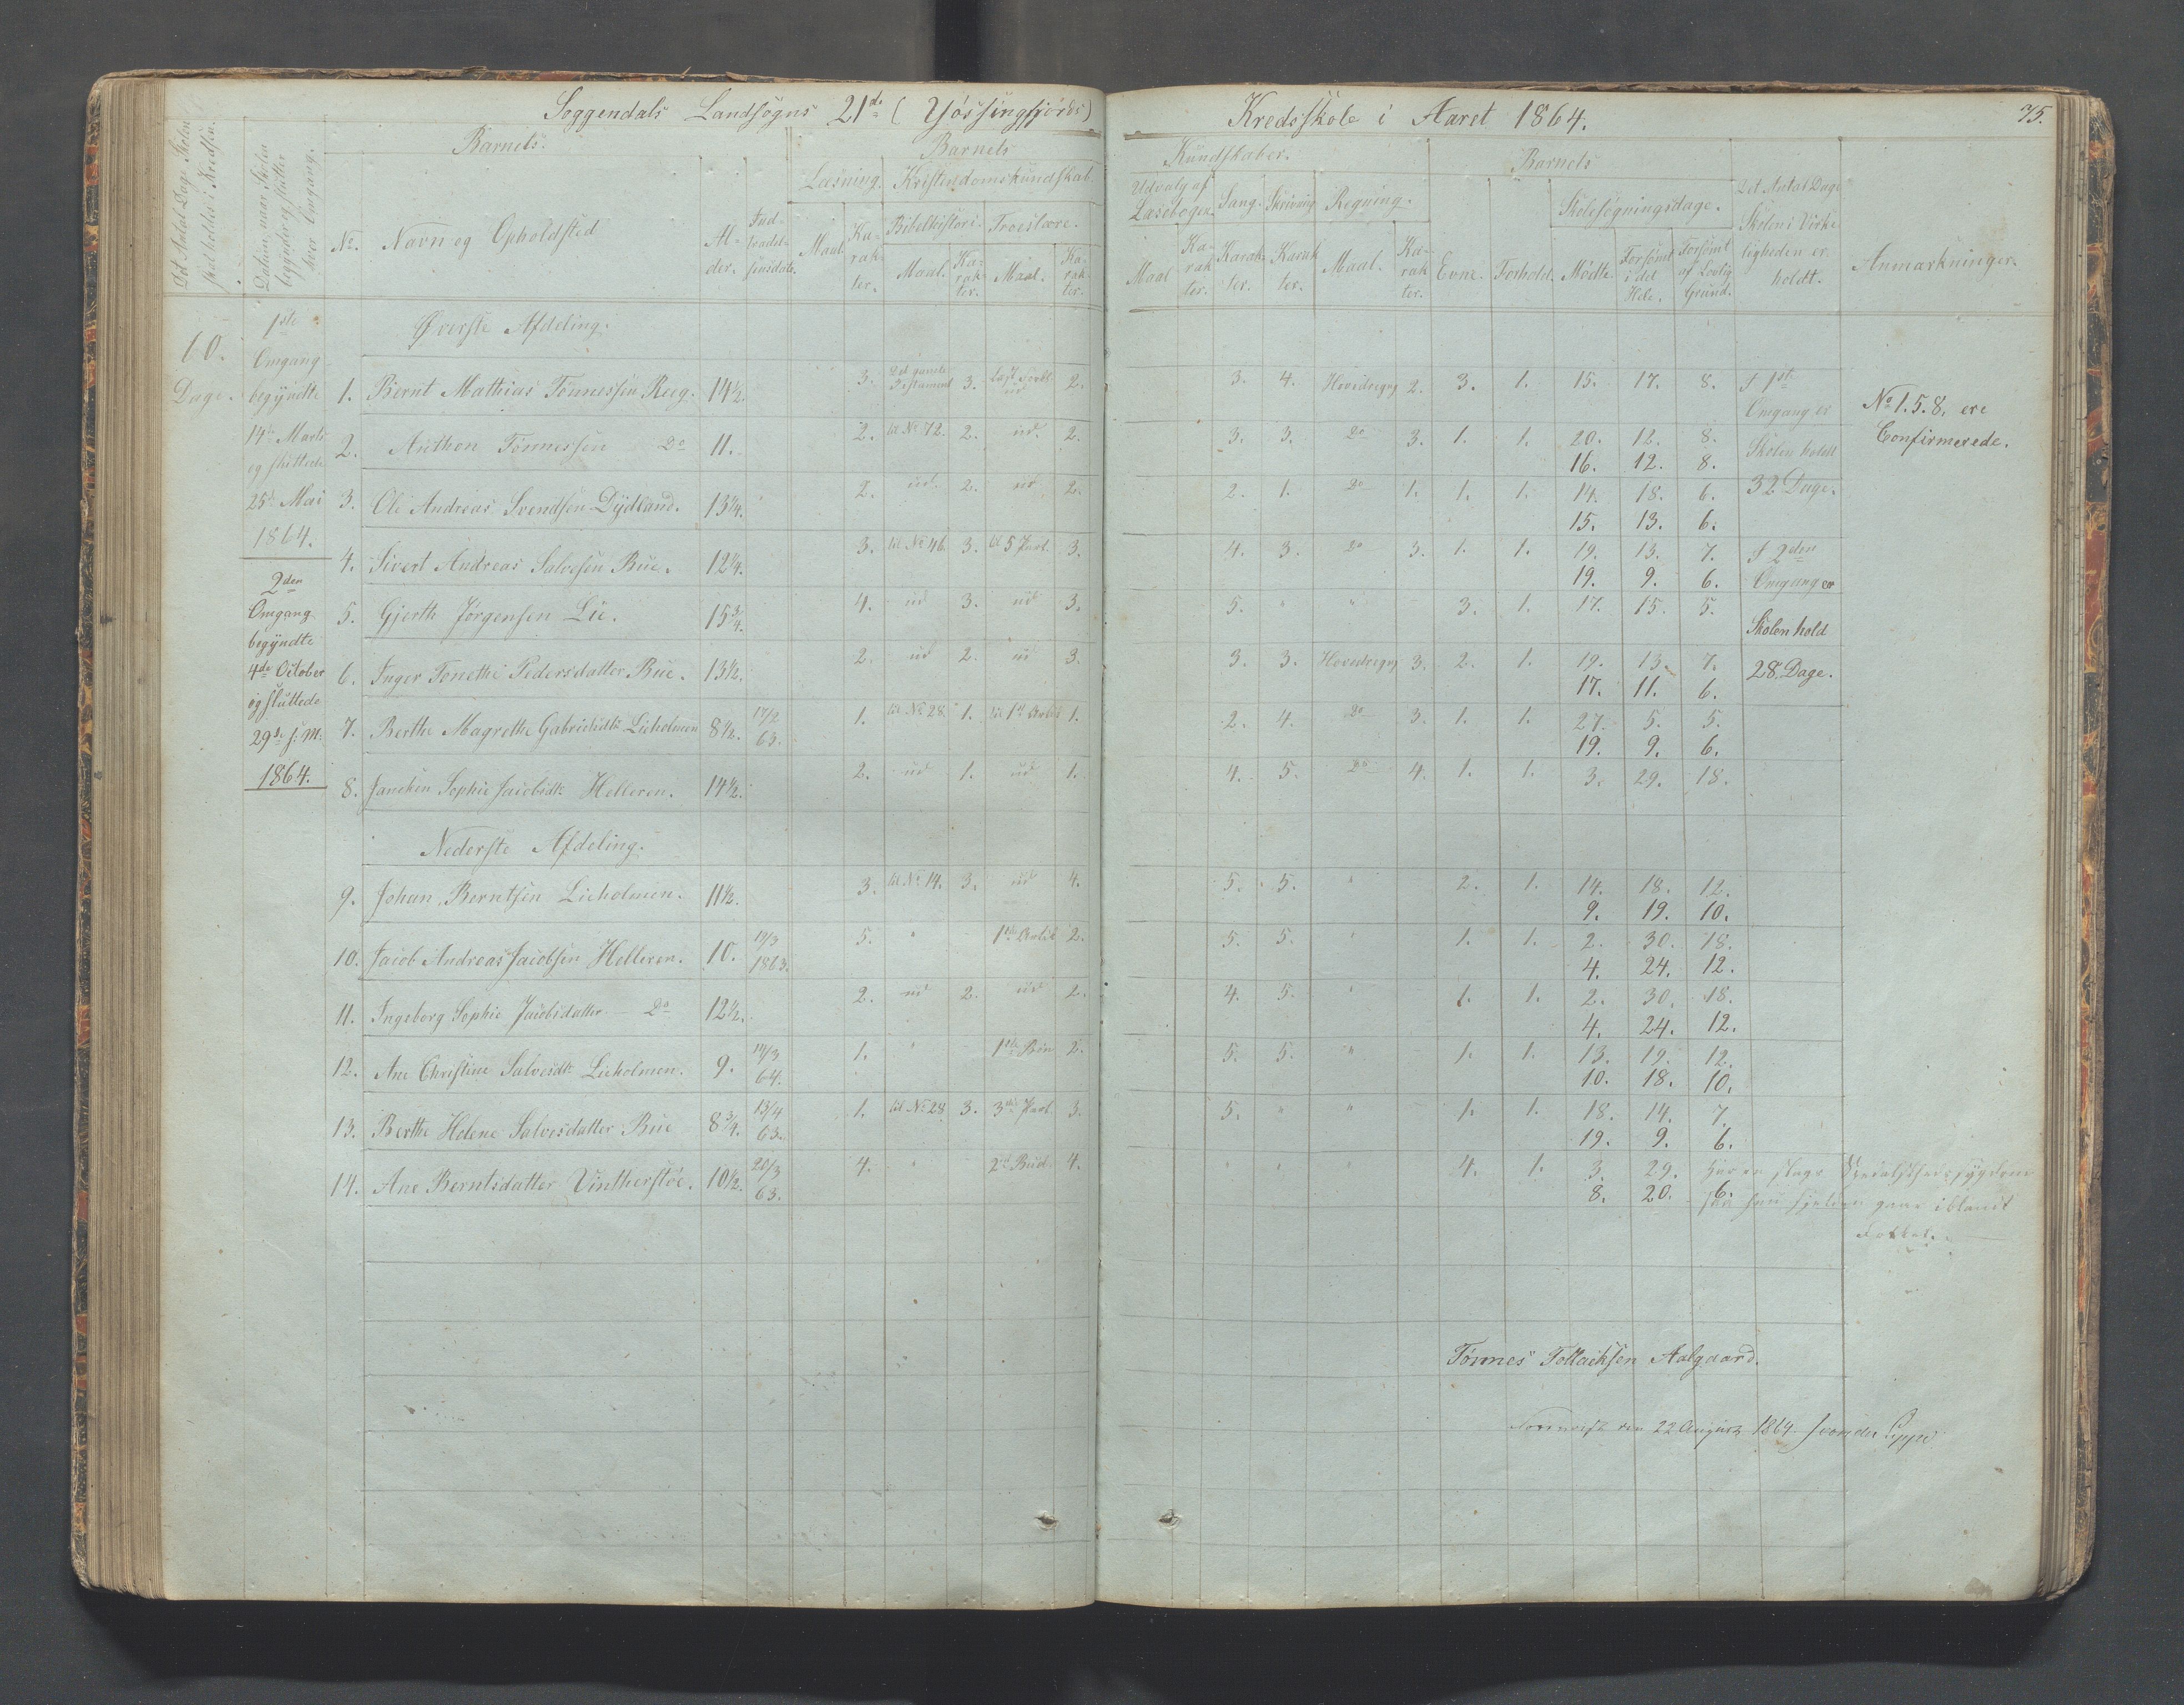 Soggendals Landsogns 21de (Jøssingfjords) Kredsskole i Aaret 1864. 75.
Det Antal Dage Skolen skal holdes i Kredsen.
Datum, naar Skolen begynder og slutter hver Omgang.
Barnets. Barnets Kundskaber. Barnets
No. Navn og Opholdsted Al-der. Ind-trædel-sesdato.
Læsning. Kristendomskundskab
Maal. Ka-rak-ter. Bibelhistori. Troeslære.
Maal. Ka-rak-ter. Maal. Ka-rak-ter.
Udvalg af Læsebogen. Sang. Skrivning Regning.
Maal Ka-rak-ter. Karak-ter. Karak-ter. Maal. Ka-rak-ter. Evne. Forhold.
Skolesøgningsdage.
Mødte. Forsømt i det Hele. Forsømt af Lovlig Grund.
Det Antal Dage Skolen i Virkeligheden er holdt.
Anmærkninger.
60. Dage.
1ste Omgang begyndte 14de Marts og sluttede 25de Mai 1864.
2den Omgang begyndte 4de October og sluttede 29de s. M. 1864.
Øverste Afdeling.
1. Bernt Mathias Tønnessen Reeg. 14½. 3. Det ganske Testament 3. 2. 3. 4. Hovedregng 2. 3. 1. 15. 17. 8.
2. Anthon Tønnessen Do 11. 2. til No 72. 2. ud. 2. 3. 3. Do 3. 1. 1. 20. 12. 8.
16. 12. 8.
3. Ole Andreas Svendsen Dydland. 13¼. 2. ud 2. ud 2. 2. 1. Do 1. 1. 1. 14. 18. 6.
15. 13. 6.
4. Sivert Andreas Salvesen Bue. 12¼. 3. til No 46. 3. til 5 Part. 3. 4. 3. Do 3. 1. 1. 19. 13. 7.
19. 9. 6.
5. Gjerth Jørgensen Lie. 15¾. 4. ud 3. ud 3. 5. " " 3. 1. 17. 15. 5.
6. Inger Tonethe Pedersdatter Bue. 13½. 2. ud 2. ud 3. 3. 3. Hovedregng 3. 2. 1. 19. 13. 7.
17. 11. 6.
7. Berthe Magrethe Gabrielsdtr Lieholmen 8½. 17/2 63. 1. til No 28. 1. til 1ste Artik 1. 2. 4. Do 3. 1. 1. 27. 5. 5.
19. 9. 6.
8. Janekin Sophie Jacobsdtr Helleren. 14½. 2. ud 1. ud 1. 4. 5. Do 4. 1. 1. 3. 29. 18.
I 1ste Omgang er Skolen holdt 32 Dage.
I 2den Omgang er Skolen hold 28. Dage.
No 1. 5. 8. ere Confirmerede.
Nederste Afdeling.
9. Johan Berntsen Lieholmen. 11½. 3. til No 14. 3. ud 4. 5. 5. " 2. 1. 14. 18. 12.
9. 19. 10.
10. Jacob Andreas Jacobsen Helleren. 10. 19/3 1863. 5. " 1ste Artik 2. 5. 5. " 1. 1. 2. 30. 18.
4. 24. 12.
11. Ingeborg Sophie Jacobsdatter Do 12½. 2. ud 2. ud 2. 4. 5. " 1. 1. 2. 30. 18.
4. 24. 12.
12. Ane Christine Salvesdtr Lieholmen. 9. 14/3 64. 1. " 1ste Bøn 2. 5. 5. " 1. 1. 13. 19. 12.
10. 18. 10.
13. Berthe Helene Salvesdatter Bue 8¾. 13/4 63. 1. til No 28 3. 3die Part. 3. 5. " " 1. 1. 18. 14. 7.
19. 9. 6.
14. Ane Berntsdatter Vintherstøe. 10½. 20/3 63. 4. " 2det Bud. 4. " " " 4. 1. 3. 29.
8. 20. 6.
har en slags Spedalskheds sygdom
saa hun sjelden gaar iblandt
Folket.
Tønnes Tollaksen Aalgaard.
den 22 August 1864